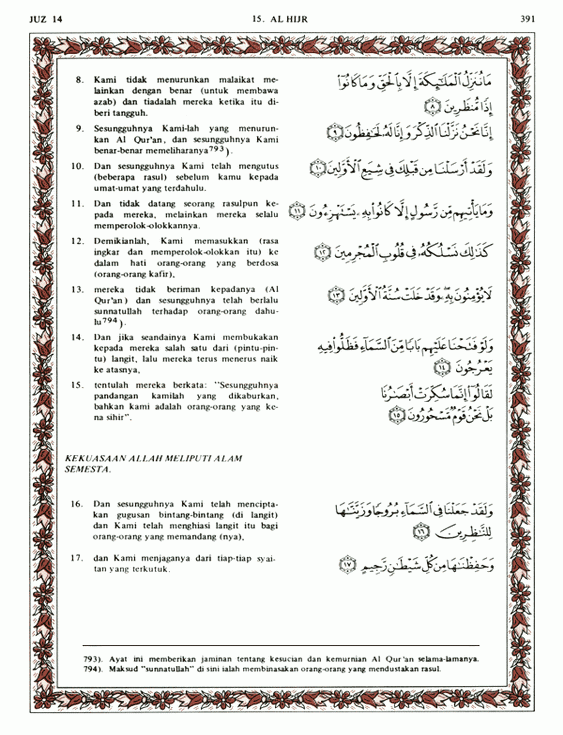 JUZ 14
15. AL HIJR
391
8. Kami tidak menurunkan malaikat me-
lainkan dengan benar (untuk membawa
azab) dan tiadalah mereka ketika itu di-
beri tangguh.
مَا نُنَزِّلُ الْمَلَٰٓئِكَةَ إِلَّا بِالْحَقِّ وَمَا كَانُوٓا۟
إِذًا مُّنظَرِينَ ﴿٨﴾
9. Sesungguhnya Kami-lah yang menurun-
kan Al Qur'an, dan sesungguhnya Kami
benar-benar memeliharanya793).
إِنَّا نَحْنُ نَزَّلْنَا الذِّكْرَ وَإِنَّا لَهُۥ لَحَٰفِظُونَ ﴿٩﴾
10. Dan sesungguhnya Kami telah mengutus
(beberapa rasul) sebelum kamu kepada
umat-umat yang terdahulu.
وَلَقَدْ أَرْسَلْنَا مِن قَبْلِكَ فِى شِيَعِ الْأَوَّلِينَ ﴿١٠﴾
11. Dan tidak datang seorang rasulpun ke-
pada mereka, melainkan mereka selalu
memperolok-olokkannya.
وَمَا يَأْتِيهِم مِّن رَّسُولٍ إِلَّا كَانُوا۟ بِهِۦ يَسْتَهْزِءُونَ ﴿١١﴾
12. Demikianlah, Kami memasukkan (rasa
ingkar dan memperolok-olokkan itu) ke
dalam hati orang-orang yang berdosa
(orang-orang kafir),
كَذَٰلِكَ نَسْلُكُهُۥ فِى قُلُوبِ الْمُجْرِمِينَ ﴿١٢﴾
13. mereka tidak beriman kepadanya (Al
Qur'an) dan sesungguhnya telah berlalu
sunnatullah terhadap orang-orang dahu-
lu794).
لَا يُؤْمِنُونَ بِهِۦ وَقَدْ خَلَتْ سُنَّةُ الْأَوَّلِينَ ﴿١٣﴾
14. Dan jika seandainya Kami membukakan
kepada mereka salah satu dari (pintu-pin-
tu) langit, lalu mereka terus menerus naik
ke atasnya,
وَلَوْ فَتَحْنَا عَلَيْهِم بَابًا مِّنَ السَّمَآءِ فَظَلُّوا۟ فِيهِ
يَعْرُجُونَ ﴿١٤﴾
15. tentulah mereka berkata: "Sesungguhnya
pandangan kamilah yang dikaburkan,
bahkan kami adalah orang-orang yang ke-
na sihir".
لَقَالُوٓا۟ إِنَّمَا سُكِّرَتْ أَبْصَٰرُنَا
بَلْ نَحْنُ قَوْمٌ مَّسْحُورُونَ ﴿١٥﴾
KEKUASAAN ALLAH MELIPUTI ALAM
SEMESTA.
16. Dan sesungguhnya Kami telah mencipta-
kan gugusan bintang-bintang (di langit)
dan Kami telah menghiasi langit itu bagi
orang-orang yang memandang (nya),
وَلَقَدْ جَعَلْنَا فِى السَّمَآءِ بُرُوجًا وَزَيَّنَّٰهَا
لِلنَّٰظِرِينَ ﴿١٦﴾
17. dan Kami menjaganya dari tiap-tiap syai-
tan yang terkutuk.
وَحَفِظْنَٰهَا مِن كُلِّ شَيْطَٰنٍ رَّجِيمٍ ﴿١٧﴾
793). Ayat ini memberikan jaminan tentang kesucian dan kemurnian Al Qur'an selama-lamanya.
794). Maksud "sunnatullah" di sini ialah membinasakan orang-orang yang mendustakan rasul.